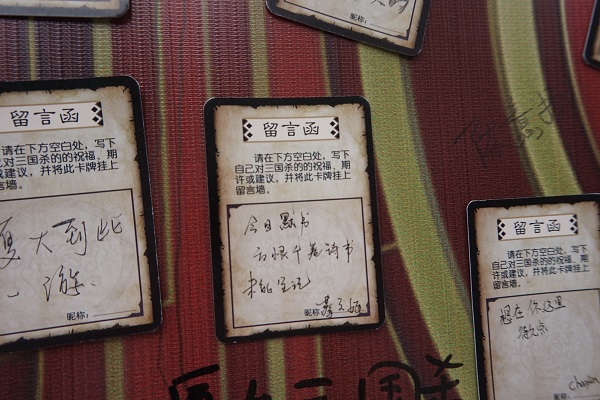 留言函
请在下方空白处，写下
自己对三国杀的的祝福、期
许或建议，并将此卡牌挂上
留言墙。
夏大到此
一游
昵称：
留言函
请在下方空白处，写下
自己对三国杀的的祝福、期
许或建议，并将此卡牌挂上
留言墙。
今日默书
幻恨千卷诗书
未能全记
昵称：
留言函
请在下方空白处，写下
自己对三国杀的的祝福、期
许或建议，并将此卡牌挂上
留言墙。
想在你这里
chapin
昵称：
昵称：
三国杀